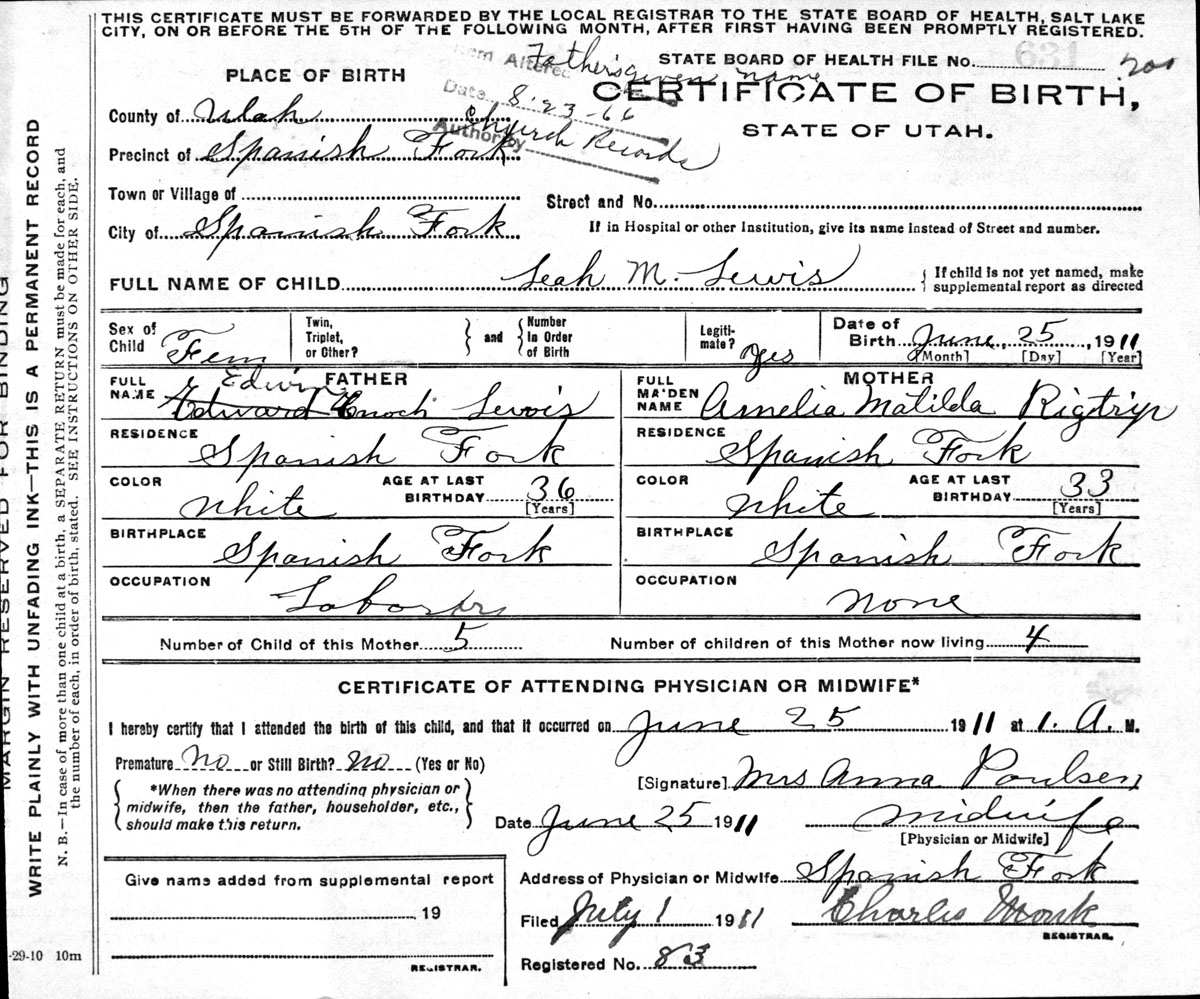 THIS CERTIFICATE MUST BE FORWARDED BY THE LOCAL REGISTRAR TO THE STATE BOARD OF HEALTH, SALT LAKE
CITY, ON OR BEFORE THE 5TH OF THE FOLLOWING MONTH, AFTER FIRST HAVING BEEN PROMPTLY REGISTERED.
Item Altered Father's given name
Date 8-23-66
Authority Church Records
STATE BOARD OF HEALTH FILE No. 631
PLACE OF BIRTH
CERTIFICATE OF BIRTH,
STATE OF UTAH.
County of Utah
Precinct of Spanish Fork
Town or Village of
Street and No.
City of Spanish Fork
If in Hospital or other Institution, give its name instead of Street and number.
FULL NAME OF CHILD Leah M. Lewis
If child is not yet named, make
supplemental report as directed
Sex of Child Fem
Twin, Triplet, or Other? and Number In Order of Birth
Legiti-mate? Yes
Date of Birth June 25, 1911
[Month] [Day] [Year]
FATHER
FULL NAME Edwin Edward Enoch Lewis
RESIDENCE Spanish Fork
COLOR White
AGE AT LAST BIRTHDAY 36 [Years]
BIRTHPLACE Spanish Fork
OCCUPATION Laborer
MOTHER
FULL MAIDEN NAME Amelia Matilda Rigtrip
RESIDENCE Spanish Fork
COLOR White
AGE AT LAST BIRTHDAY 33 [Years]
BIRTHPLACE Spanish Fork
OCCUPATION None
Number of Child of this Mother 5 Number of children of this Mother now living 4
CERTIFICATE OF ATTENDING PHYSICIAN OR MIDWIFE*
I hereby certify that I attended the birth of this child, and that it occurred on June 25 1911 at 1. A. M.
Premature No or Still Birth? No (Yes or No)
*When there was no attending physician or
midwife, then the father, householder, etc.,
should make this return.
[Signature] Mrs Anna Poulsen
Date June 25 1911 midwife
[Physician or Midwife]
Give name added from supplemental report
19
REGISTRAR.
Address of Physician or Midwife Spanish Fork
Filed July 1 1911 Charles Monk
REGISTRAR.
Registered No. 83
-29-10 10m
MARGIN RESERVED FOR BINDING
WRITE PLAINLY WITH UNFADING INK—THIS IS A PERMANENT RECORD
N. B.—In case of more than one child at a birth, a SEPARATE RETURN must be made for each, and
the number of each, in order of birth, stated. SEE INSTRUCTIONS ON OTHER SIDE.